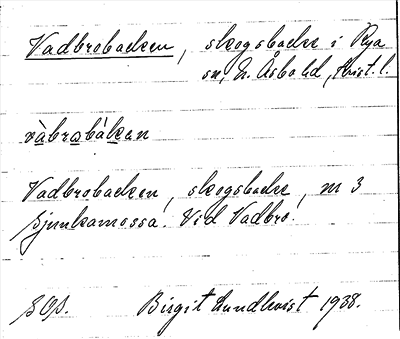 Vadbrobacken, skogsbacke i Rya
sn, N. Åsbo hd, Krist. l.
vàbrobàkan
Vadbrobacken, skogsbacke, m 3
Sjunkamossa. Vid Vadbro.
Birgit Lundkvist 1938.